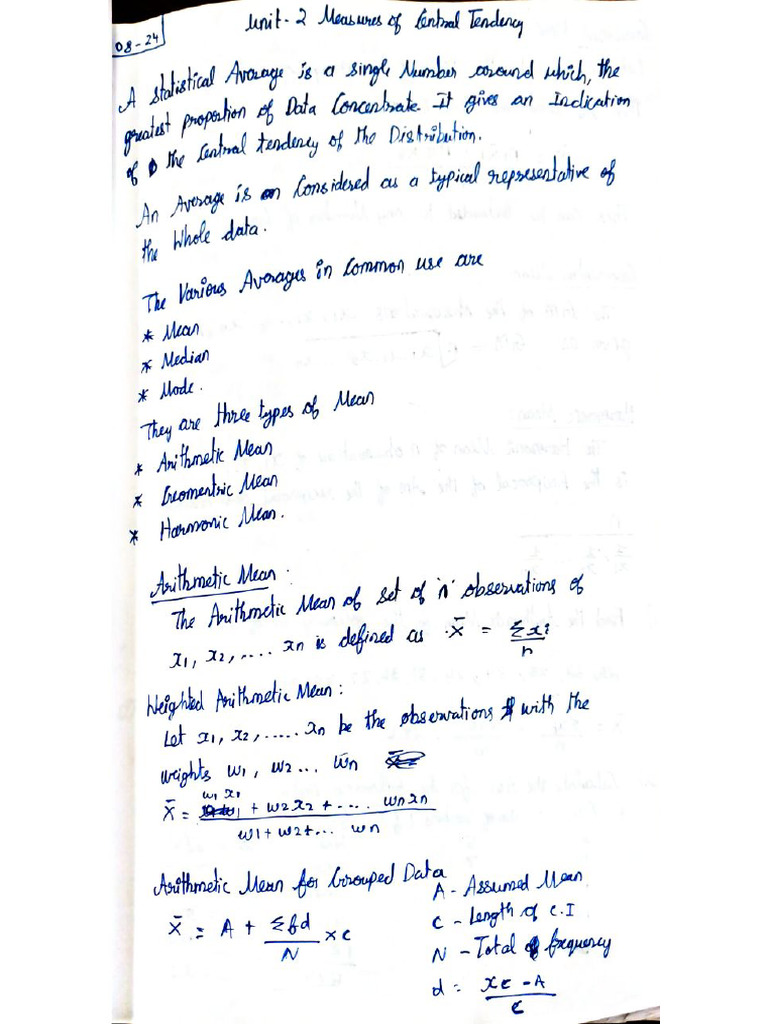 08-24
Unit-2 Measures of Central Tendency
A Statistical Average is a single Number around which, the
greatest proportion of Data Concentrate. It gives an Indication
of the Central tendency of the Distribution.
An Average is Considered as a typical representative of
the Whole data.
The Various Averages in Common use are
* Mean
* Median
* Mode.
They are three types of Mean
* Arithmetic Mean
* Geomentric Mean
* Harmonic Mean.
Arithmetic Mean :
The Arithmetic Mean of set of 'n' observations of
x1, x2, .... xn is defined as x̄ = Σxi / n
Weighted Arithmetic Mean :
Let x1, x2, ..... xn be the observations with the
weights w1, w2 ... wn
x̄ = w1x1 + w2x2 + .... wnxn / w1 + w2 + ... wn
Arithmetic Mean for Grouped Data
x̄ = A + Σfd / N × c
A - Assumed Mean
C - Length of C.I
N - Total frequency
d = xc - A / c